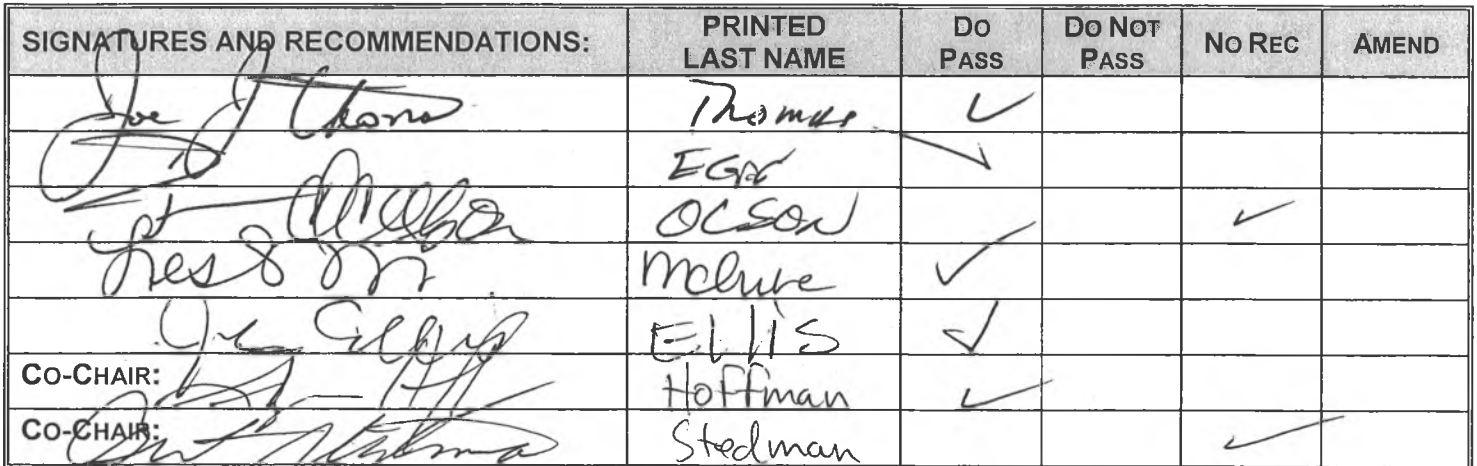 SIGNATURES AND RECOMMENDATIONS: PRINTED LAST NAME DO PASS DO NOT PASS NO REC AMEND
Joe J Thomas Thomas ✓
EGAN ✓
Olson OLSON ✓
McGuire ✓
Ellis ELLIS ✓
CO-CHAIR: Hoffman ✓
CO-CHAIR: Stedman ✓